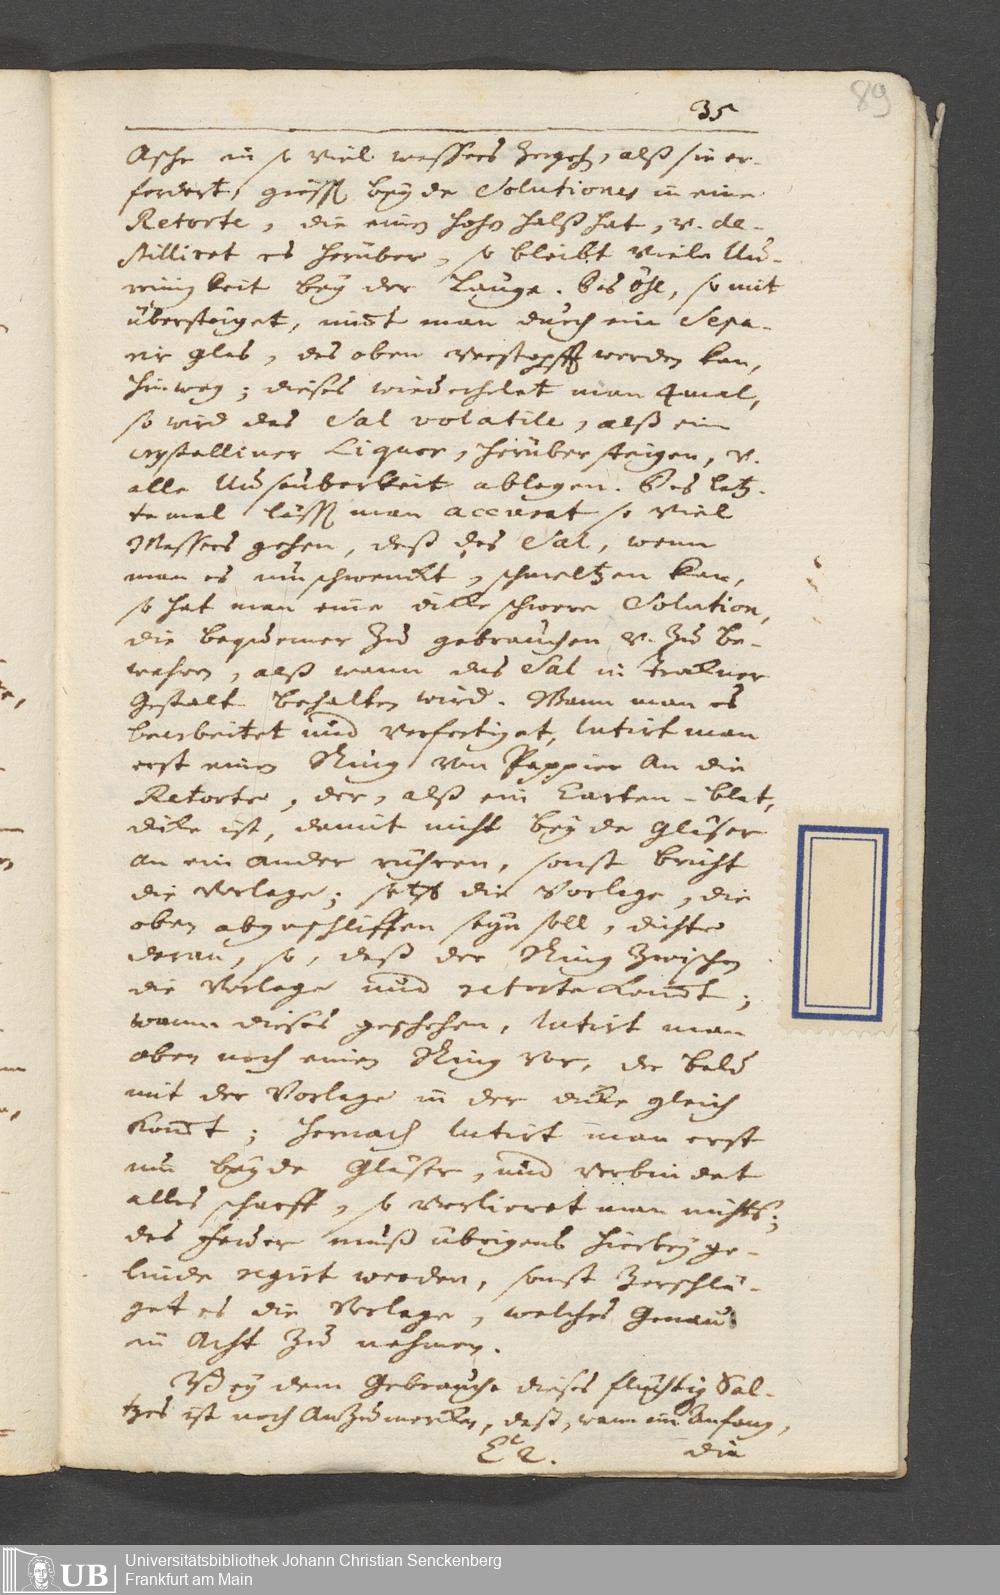 35
89
Asche in so viel wassers zergeh, alß sie er-
fordert, giess beÿde Solutiones in eine
Retorte, die einen hohen Halß hat, v. de-
stilliret es herüber, so bleibt viele Un-
reinigkeit beÿ der Lauge. Das öhl, so mit
übersteiget, nim̄t man durch ein Sepa-
rir glas, das oben verstopfft werden kan,
hinweg; dieses wiederholet man 4 mal,
so wird das Sal volatile, alß ein
crystalliner Liquor, herüber steigen, v.
alle Unsauberkeit ablegen. Das letz-
te mal lässt man accurat so viel
Wassers gehen, daß das Sal, wenn
man es umschwenckt, schmeltzen kan,
so hat man eine dikke schwere Solution,
die bequemer zu gebrauchen v. zu be-
wahren, alß wann das Sal in trockner
Gestalt behalten wird. Wann man es
bearbeitet und verfertiget, lutirt man
erst einen Ring von Pappier an die
Retorte, der, alß ein Carten-blat,
dike ist, damit nicht beÿde Gläser
an ein ander rühren, sonst bricht
die Vorlage; setzt die Vorlage, die
oben abgeschliffen seÿn soll, dichte
daran, so, daß der Ring zwischen
die Vorlage und retorte kom̄t;
wann dieses geschehen, lutirt man
oben noch einen Ring vor, der bald
mit der Vorlage in der dicke gleich
kom̄t; hernach lutirt man erst
um beÿde Gläser, und verbindet
alles scharff, so verlieret man nichts;
das feuer muß übrigens hierbeÿ ge-
linde regirt werden, sonst zerschlä-
get es die Vorlage, welches genau
in Acht zu nehmen.
Beÿ dem Gebrauche dieses flüchtig Sal-
tzes ist noch anzumercken, daß, wann im Anfang,
die
UB
Universitätsbibliothek Johann Christian Senckenberg
Frankfurt am Main